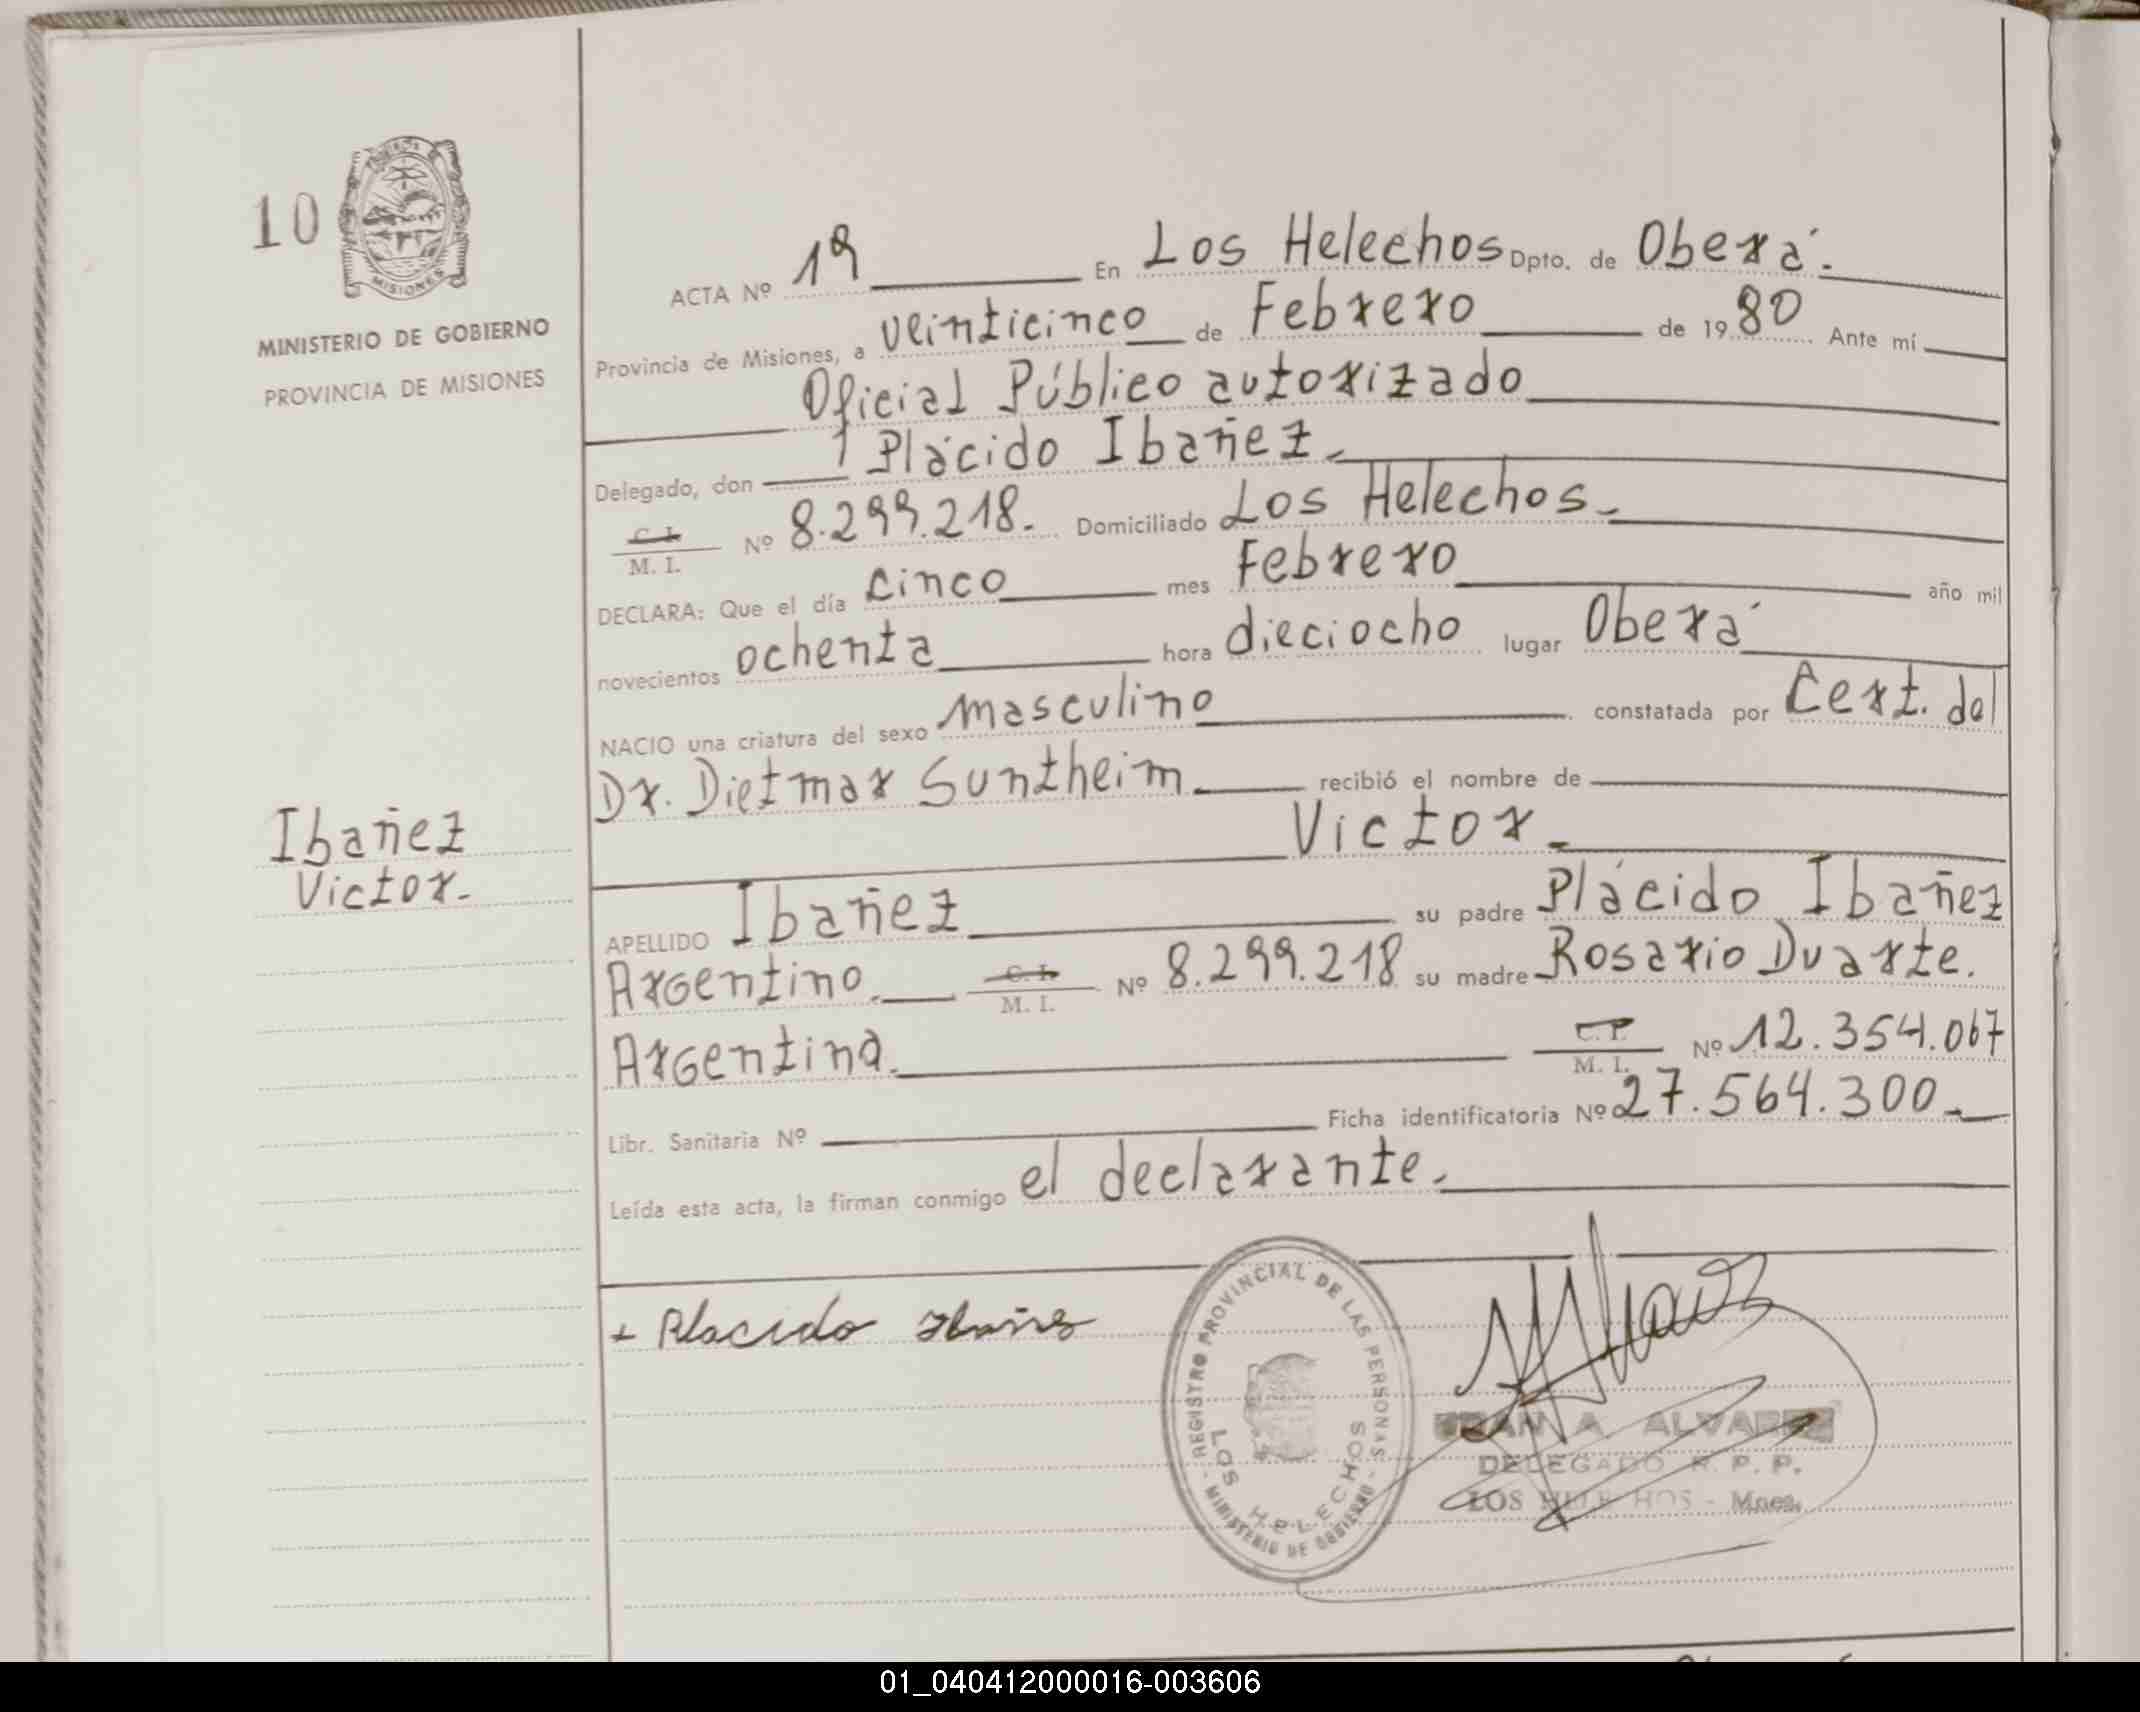 10
MISIONES
MINISTERIO DE GOBIERNO
PROVINCIA DE MISIONES
ACTA Nº 19 En Los Helechos Dpto. de Oberá.
Provincia de Misiones, a veinticinco de Febrero de 1980 Ante mí
Oficial Público autorizado
Delegado, don Plácido Ibañez.
C. I. M. I. Nº 8.299.218. Domiciliado Los Helechos.
DECLARA: Que el día cinco mes Febrero año mil
novecientos ochenta hora dieciocho lugar Oberá
NACIO una criatura del sexo masculino constatada por Cert. del
Dr. Dietmar Suntheim. recibió el nombre de
Victor.
Ibañez
Victor.
APELLIDO Ibañez su padre Plácido Ibañez
Argentino. C. I. M. I. Nº 8.299.218 su madre Rosario Duarte.
Argentina. C. I. M. I. Nº 12.354.067
Libr. Sanitaria Nº Ficha identificatoria Nº 27.564.300.
Leída esta acta, la firman conmigo el declarante.
+ Placido Ibañes
REGISTRO PROVINCIAL DE LAS PERSONAS
LOS HELECHOS
MINISTERIO DE GOBIERNO
A. ALVAREZ
DELEGADO R. P. P.
LOS HELECHOS - Mnes.
01_040412000016-003606